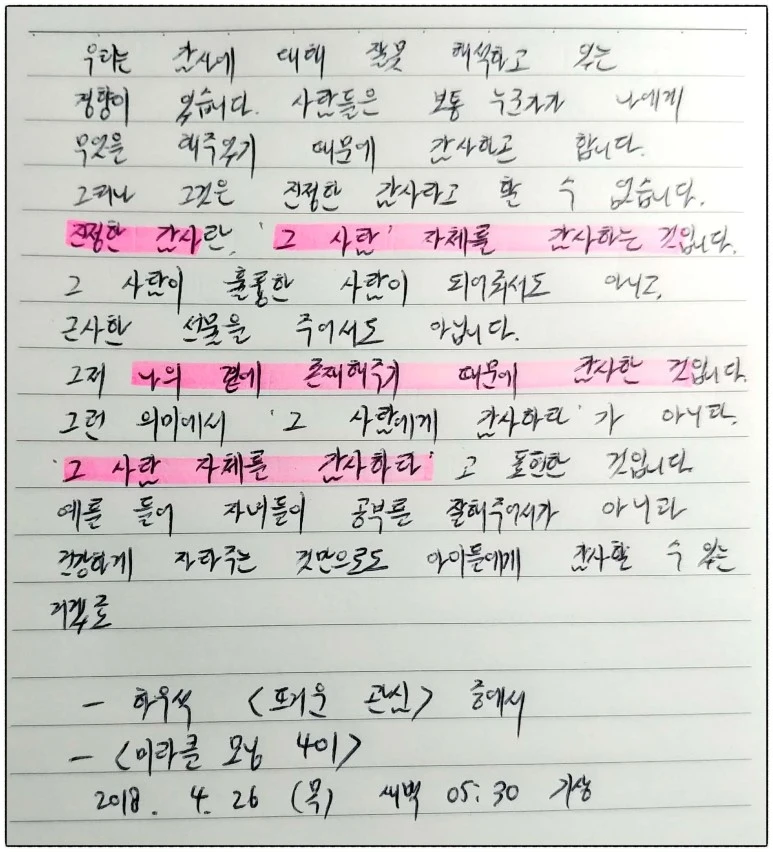 우리는 감사에 대해 잘못 해석하고 있는
경향이 있습니다. 사람들은 보통 누군가가 나에게
무엇을 해주었기 때문에 감사하곤 합니다.
그러나 그것은 진정한 감사라고 할 수 없습니다.
진정한 감사란, '그 사람' 자체를 감사하는 것입니다.
그 사람이 훌륭한 사람이 되어줘서도 아니고,
근사한 선물을 주어서도 아닙니다.
그저 나의 곁에 존재해주기 때문에 감사한 것입니다.
그런 의미에서 '그 사람에게 감사하라'가 아니라.
'그 사람 자체를 감사하라'고 표현한 것입니다.
예를 들어 자녀들이 공부를 잘해주어서가 아니라
건강하게 자라주는 것만으로도 아이들에게 감사할 수 있는
- 하우석 <뜨거운 관심> 중에서
- <미라클 모닝 401>
2018. 4. 26 (목) 새벽 05:30 기상